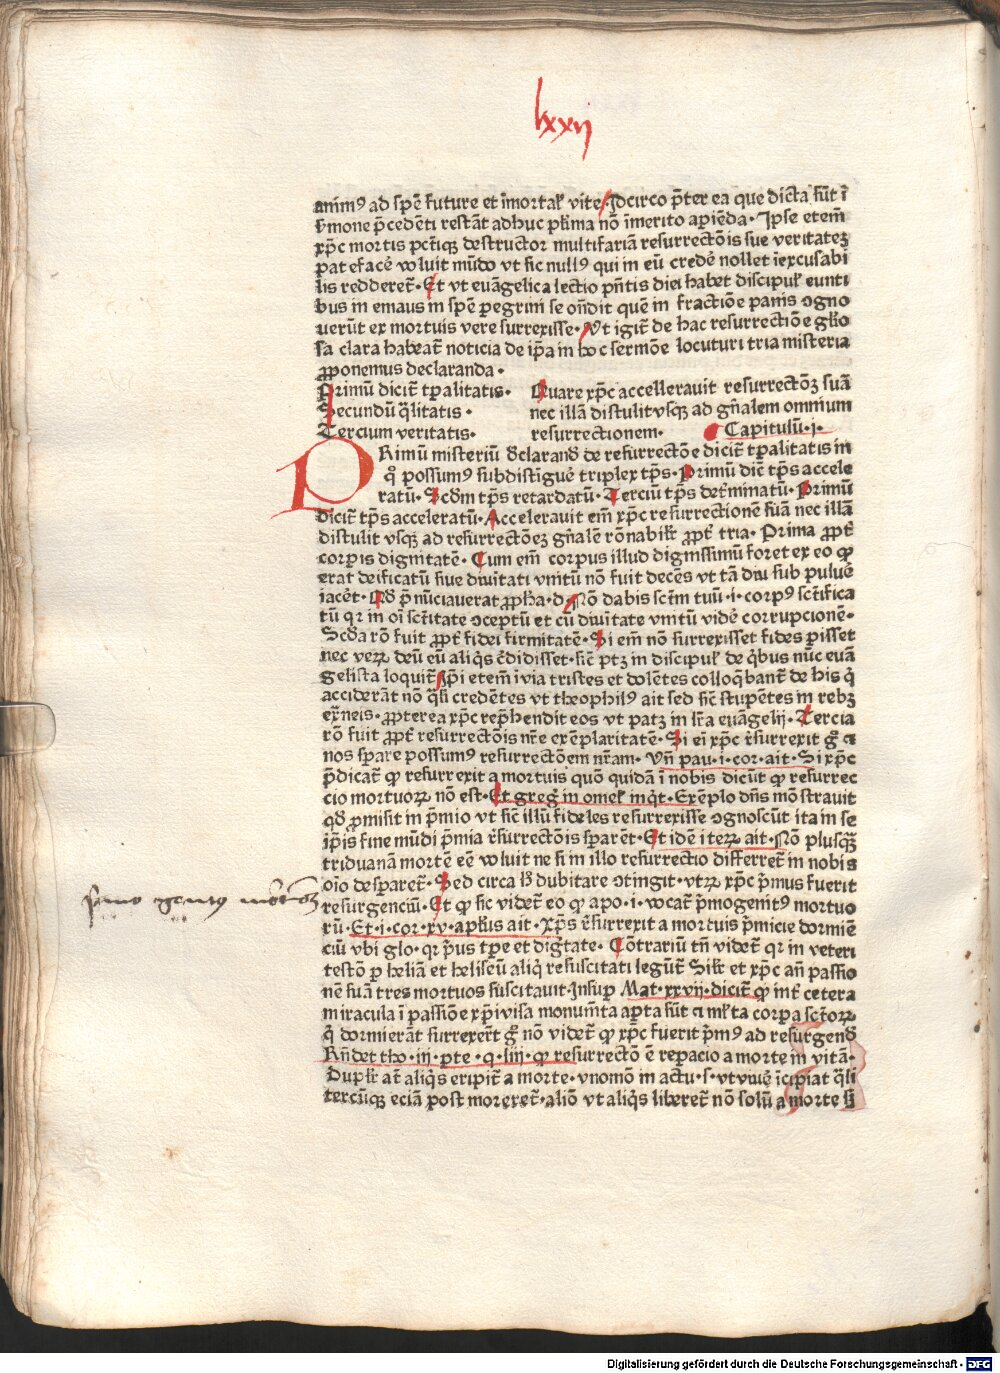 lxxij
anim⁹ ad spē future et īmortaƚ vite. Idcirco p̄ter ea que dicta sūt ī
s̄mone p̄cedēti restāt adhuc pl̄ima nō īmerito apiēda. Ipse etem̄
xp̄c mortis pct̄iqꝫ destructor multifariā resurrectōis sue veritateꝫ
patefacē voluit mūdo vt sic null⁹ qui in eū credē nollet iexcusabi
lis redderet᷑. Et vt euāgelica lectio pn̄tis diei habet discipuƚ eunti
bus in emaus in spē pegrini se on̄dit quē in fractiōe panis ꝯgno
uerūt ex mortuis vere surrexisse. Vt igit᷑ de hac resurrectiōe glīo
sa clara habeat᷑ noticia de ip̄a in hoc sermōe locuturi tria misteria
ꝓponemus declaranda.
Primū dicit᷑ tꝑalitatis.
Secundū q̄litatis.
Tercium veritatis.
Quare xp̄c accellerauit resurrectōꝫ suā
nec illā distulit vsqꝫ ad gn̄alem omnium
resurrectionem. Capitulū.i.
PRimū misteriū d̄clarand̄ de resurrectōe dicit᷑ tꝑalitatis in
q̊ possum⁹ subdistīguē triplex tp̄s. Primū dic̄ tp̄s accele
ratū. Scd̄m tp̄s retardatū. Terciū tp̄s det᷑minatū. Primū
dicit᷑ tp̄s acceleratū. Accelerauit em̄ xp̄c resurrectionē suā nec illā
distulit vsqꝫ ad resurrectōeꝫ gn̄alē rōnabiƚr ꝓpt᷑ tria. Prima ꝓpt᷑
corpis dignitatē. Cum em̄ corpus illud dignissimū foret ex eo ꝙ
erat deificatū siue diuītati vnitū nō fuit decēs vt tā diu sub puluē
iacēt. Qd̄ p̄nūciauerat ꝓpha.d. Nō dabis sct̄m tuū.i.corp⁹ sct̄ifica
tū qr in oī sct̄itate ꝯceptū et cū diuītate vnitum vidē corrupcionē.
Scd̄a rō fuit ꝓpt᷑ fidei firmitatē. Si em̄ nō surrexisset fides pisset
nec veꝝ deū eū aliq̄s c̄didisset. sic̄ ptꝫ in discipuƚ de q̄bus nūc euā
gelista loquit᷑. Ip̄i etem̄ ī via tristes et dolētes colloq̄bant᷑ de his q̄
acciderāt nō q̄si credētes vt theophil⁹ ait sed sic̄ stupētes in rebꝫ
ext᷑neis. ꝓpterea xp̄c rep̄hendit eos vt patꝫ in lr̄a euāgelij. Tercia
rō fuit ꝓpt᷑ resurrectōis nr̄e exēplaritatē. Si eī xp̄c r̄surrexit gͦ ⁊
nos spare possum⁹ resurrectōem nr̄am. Vn̄ pau.i.cor.ait. Si xp̄c
p̄dicat᷑ ꝙ resurrexit a mortuis quō quidā ī nobis dicūt ꝙ resurrec
cio mortuoꝝ nō est. Et greg᷑ in omeƚ inq̄t. Exēplo dn̄s mōstrauit
qd̄ ꝓmisit in p̄mio vt sic̄ illū fideles resurrexisse ꝯgnoscūt ita in se
ip̄is fine mūdi p̄mia r̄surrectōis sparēt. Et idē iteꝝ ait. Nō plusqꝫ̄
triduanā mortē eē voluit ne si in illo resurrectio differret᷑ in nobis
oīo desparet᷑. Sed circa h̄ dubitare ꝯtingit. vtꝝ xp̄c p̄mus fuerit
resurgenciū. Et ꝙ sic videt᷑ eo ꝙ apo.i.vocat᷑ p̄mogenit⁹ mortuo
rū. Et.i.cor.xv.apƚus ait. Xp̄s r̄surrexit a mortuis p̄micie dormiē
ciū vbi glo. qr p̄us tꝑe et dig᷑tate. Cōtrariū tn̄ videt᷑ qr in veteri
testō p heliā et heliseū aliq̄ resuscitati legūt᷑. Siƚr et xp̄c an̄ passio
nē suā tres mortuos suscitauit. Insuꝑ Mat.xxvij.dicit᷑ ꝙ int᷑ cetera
miracula ī passiōe xp̄i visa monum̄ta apta sūt ⁊ mƚta corpa sct̄oꝝ
q̄ dormierāt surrexer̄t gͦ nō videt᷑ ꝙ xp̄c fuerit p̄m⁹ ad resurgend̄
Rn̄det tho.iij.pte.q.liij.ꝙ resurrectō ē repacio a morte in vitā.
Dupƚr at᷑ aliq̄s eripit᷑ a morte. vnomō in actu.s.vt viuē īcipiat q̄li
tercūqꝫ eciā post morexet᷑. aliō vt aliq̄s liberet᷑ nō solū a morte s̄ȝ